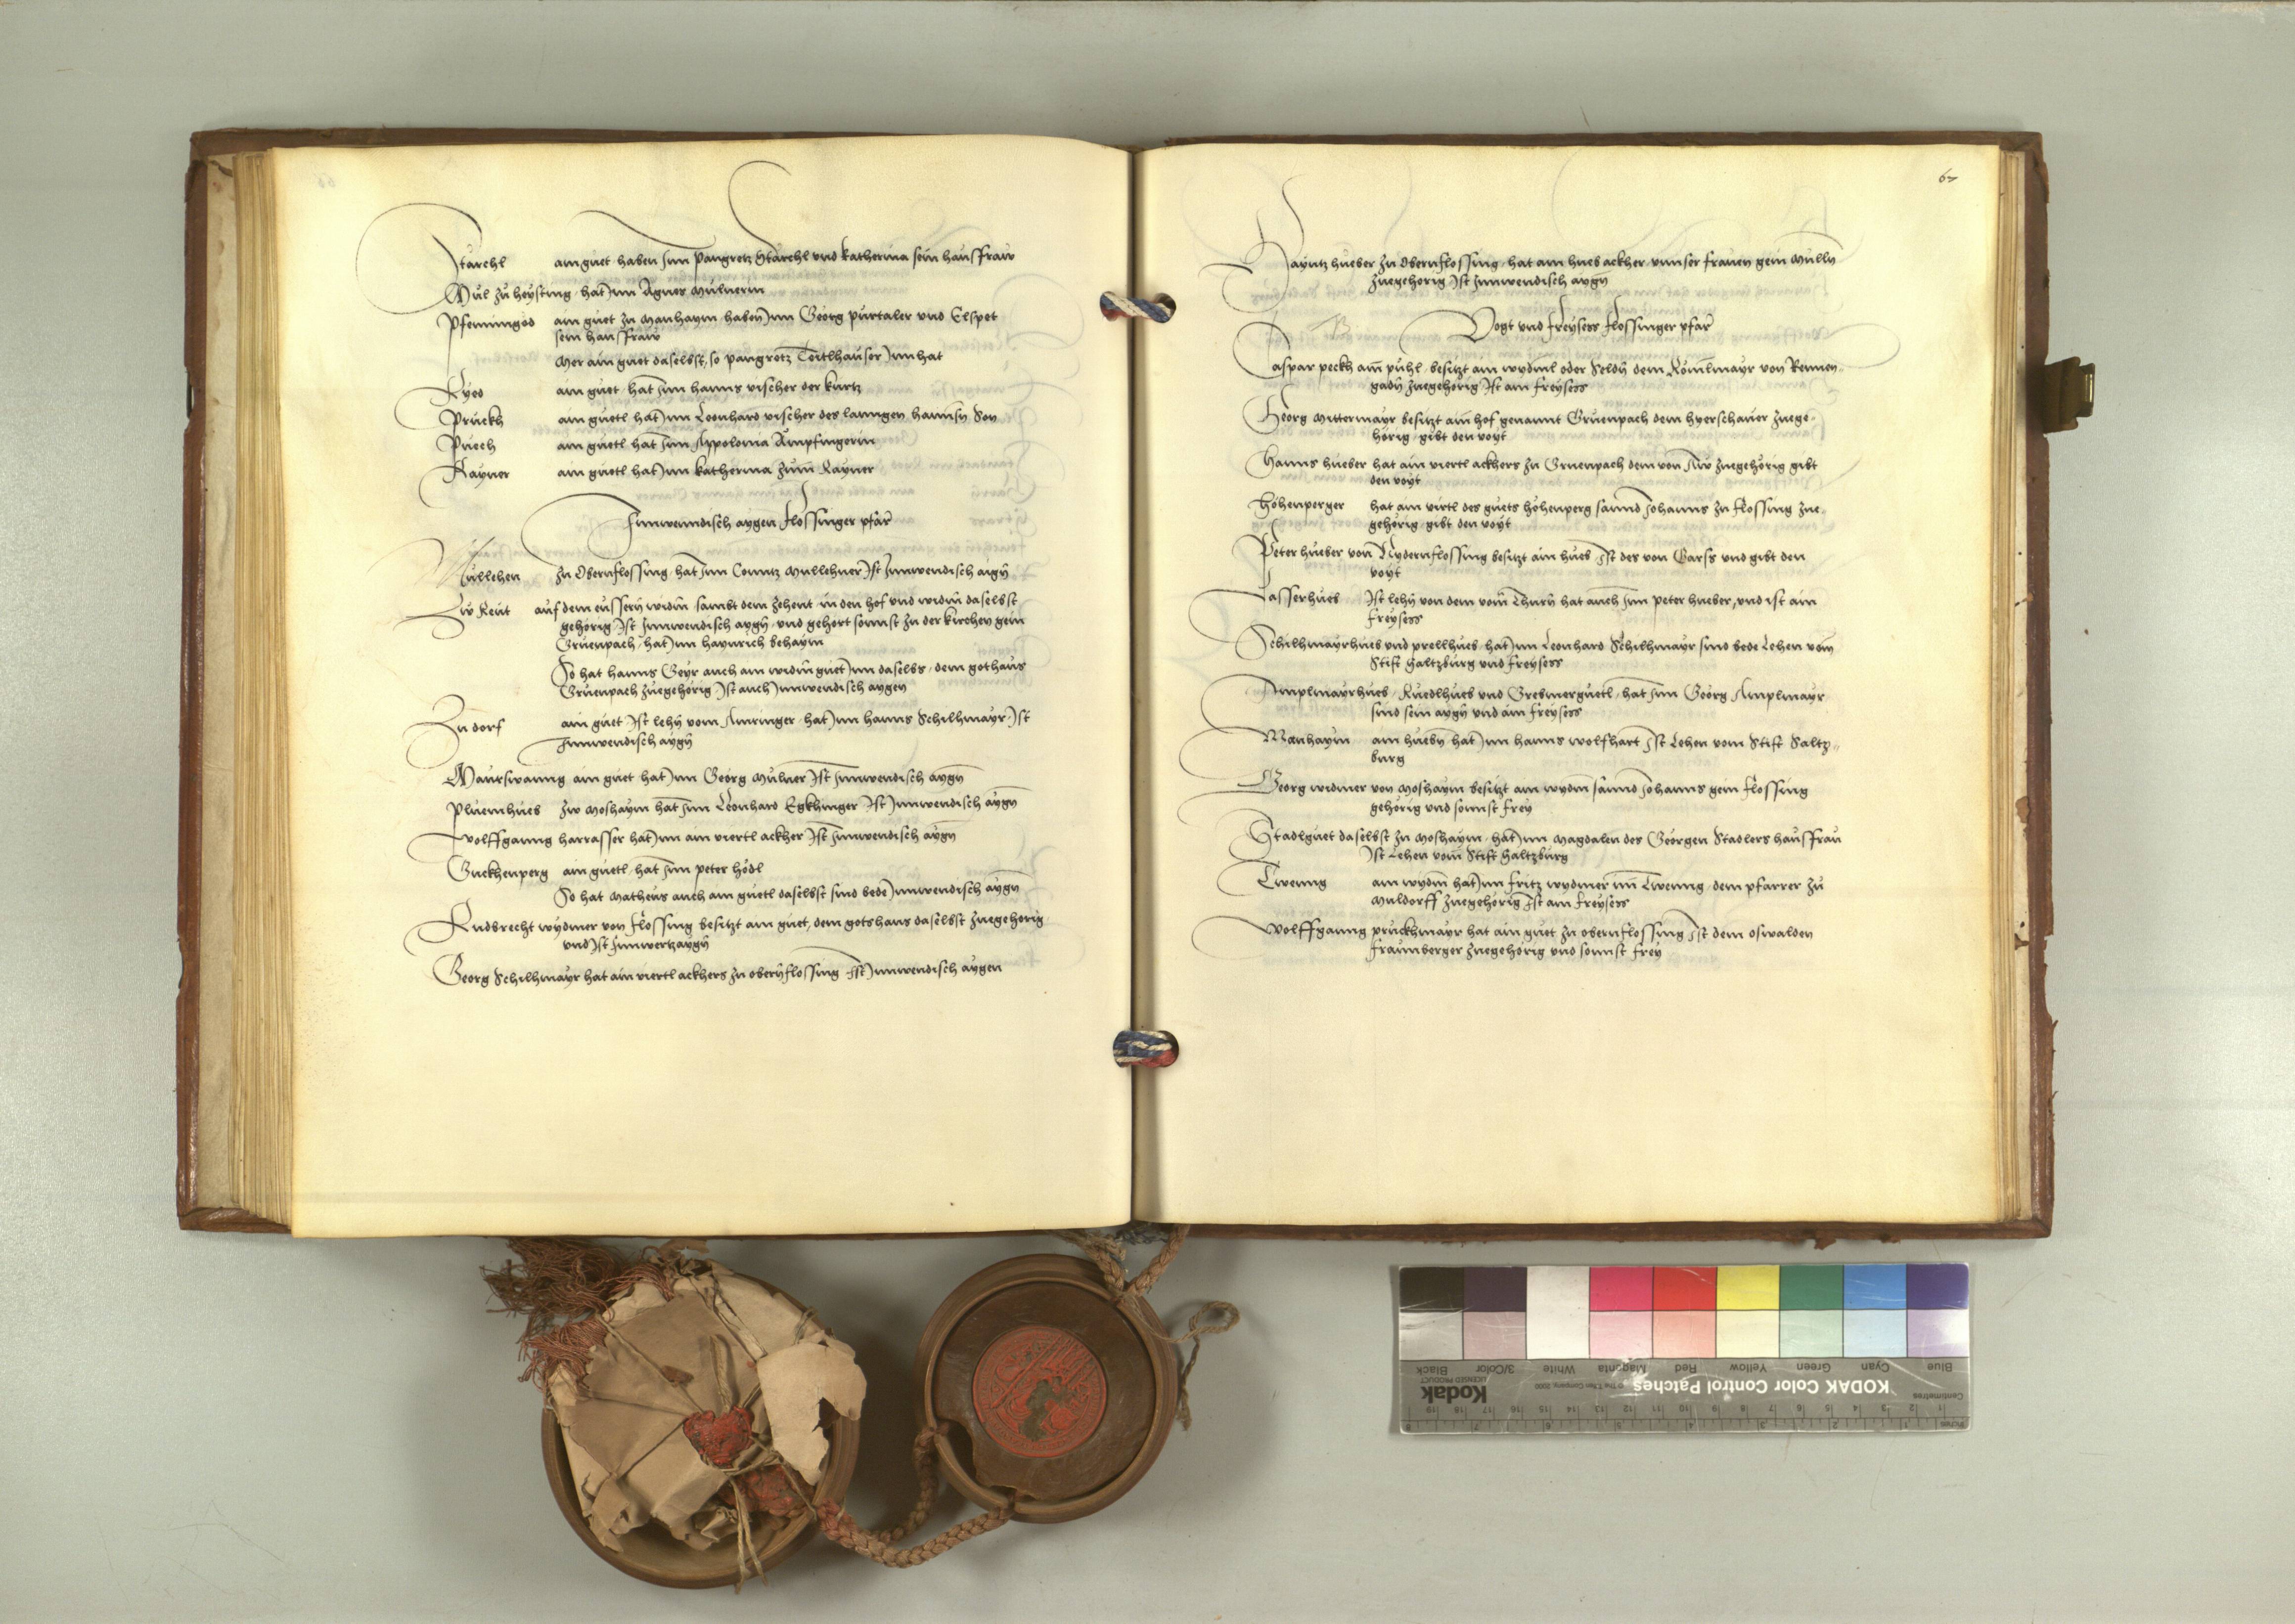 Stärchl ain guet haben Jnn Pangretz Stärchl vnd katherina sein hausfraw
Mül zu heysting hat Jnn Agnes Mülnerin
Pfenningöd ain guet zu Manhaym haben Jnn Georg purtaler vnd Elspet
sein hausfraw
Mer ain guet daselbst, so pangretz Teitlhauser Jnn hat
Ryed ain guet hat Jnn hanns vischer der kurtz
Prückh ain güetl hat Jnn Leonhard vischer des lanngen hannsn Son
Püech ain güetl hat Jnn Appolonia Ampfingerin
Rayner ain güetl hat Jnn katherina zum Rayner
Jnnwenndisch aygen Flossinger pfarr
Müllehen zu Obernflossing hat Jnn Conntz Mullehner Ist Jnnwendisch aign
Zw Reut auf dem eussern widm sambt dem zehent in den hof vnd widm daselbst
gehörig Ist Jnnwendisch aygn vnd gehört sonnst zu der kirchen gein
Gruenpach hat Jnn haynrich behaym
So hat hanns Geyr auch ain widm guet Jnn daselbs dem gothaus
Gruenpach zuegehörig Ist auch Jnnwendisch aygen
Zu dorf ain guet Ist lehn vom Amringer hat Jnn hanns Schilhmayr Ist
Jnnwendisch aygn
Maurswanng ain guet hat Jnn Georg Mülner Ist Jnnwendisch aygn
Pluemhueb zw Moshaym hat Jnn Leonhard Egkhinger Ist Jnnwendisch aygn
Wolffganng harrasser hat Jnn ain viertl ackher Ist Jnnwendisch aygn
Guckhenperg ain güetl hat Jnn peter hödl
So hat Matheus auch ain güetl daselbst sind bede Jnnwendisch aygn
Rudbrecht wydmer von Flossing besitzt ain guet, dem gotshaus daselbst zuegehörig
vnd Ist Jnnwertzaygn
Georg Schilhmayr hat ain viertl ackhers zu obernflossing Ist Jnnwendisch aygen
67
Hayntz hueber zu Obernflossing hat ain hueb ackher vnnser frauen gein Mülln
zuegehörig Ist Jnnwendisch aygn
Vogt vnd freysess flossinger pfarr
Caspar peckh am pühl besitzt ain wydml oder Seldn dem Römlmayr von Rennen
gadn zuegehörig Ist ain freysess
Georg Mittermayr besitzt ain hof genannt Gruenpach dem hyerschauer zuege-
hörig gibt den voyt
Hanns hueber hat ain viertl ackhers zu Gruenpach dem von Aw zuegehörig gibt
den voyt
Höhenperger hat ain virtl des guets höhenperg sannd Johanns zu Flossing zue-
gehörig gibt den voyt
Peter hueber von Nydernflossing besitzt ain hueb Ist des von Garss vnd gibt den
voyt
Vasserhueb Ist lehn von dem vom Thurn hat auch Jnn peter hueber, vnd ist ain
freysess
Schilhmayrhueb vnd prellhueb hat Jnn Leonhard Schilhmayr sind bede Lehen vom
Stift Saltzburg vnd freysess
Amplmayrhueb Ruedlhueb vnd Gresmerguetl hat Jnn Georg Amplmayr
sind sein aygn vnd ain freysess
Manhaym ain huebn hat Jnn hanns wolfhart Ist Lehen vom Stift Saltz-
burg
Georg widmer von Moshaym besitzt ain wydm sannd Johanns gein Flossing
gehörig vnd sonnst frey
Stadlguet daselbst zu Moshaym hat Jnn Magdalen des Georgen Stadlers hausfrau
Ist Lehen vom Stift Saltzburg
Twenng ain wydm hat Jnn fritz wydmer im Twenng dem pfarrer zu
Muldorff zuegehörig Ist ain freysess
Wolffganng pruckhmayr hat ain guet zu obernflossing Ist dem oswalden
fraunberger zuegehörig vnd sonnst frey
KODAK Color Control Patches
Kodak
LICENSED PRODUCT
© The Tiffen Company, 2000
Blue Cyan Green Yellow Red Magenta White 3/Color Black
Centimetres
Inches